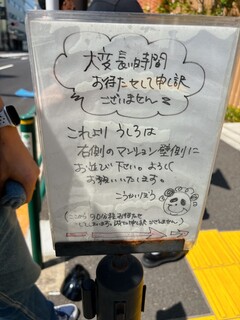 大変長い時間
お待たせして申し訳
ございません
これより うしろは
右側のマンション壁側に
お並び下さい。よろしく
お願いいたします。
ここから90分程お待たせ